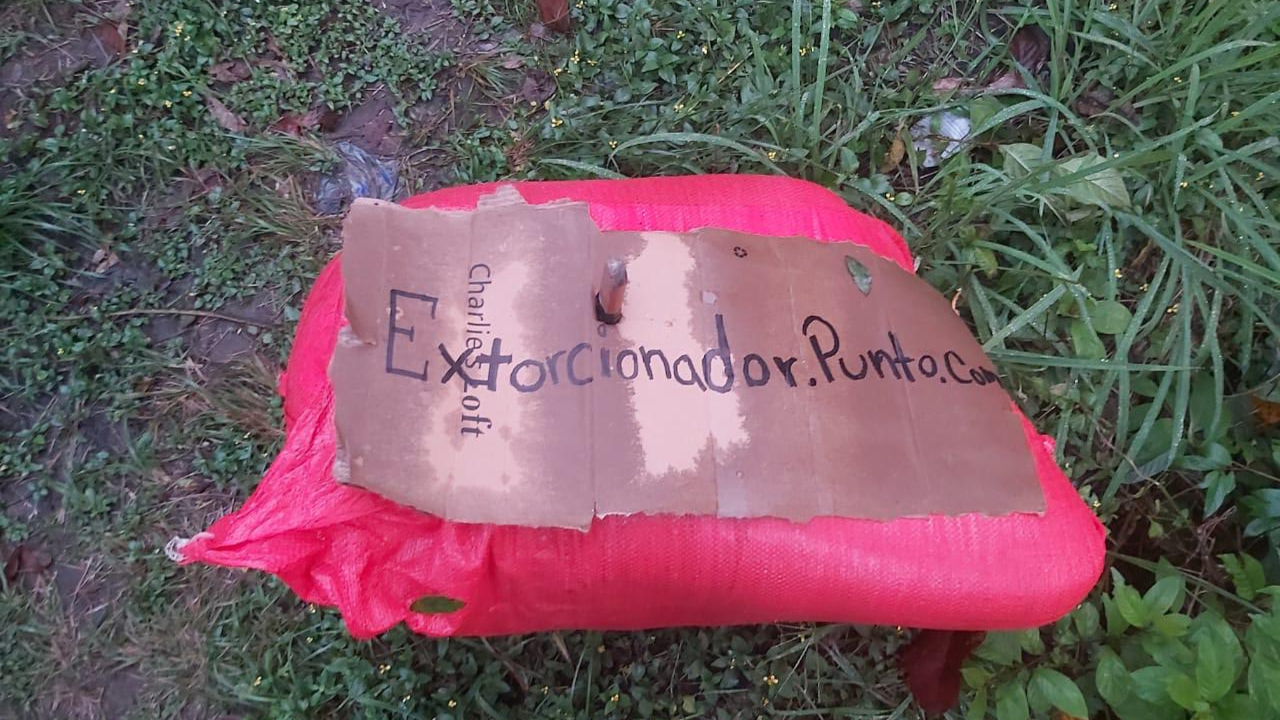 Extorcionador.Punto.Com
Charlie's Loft